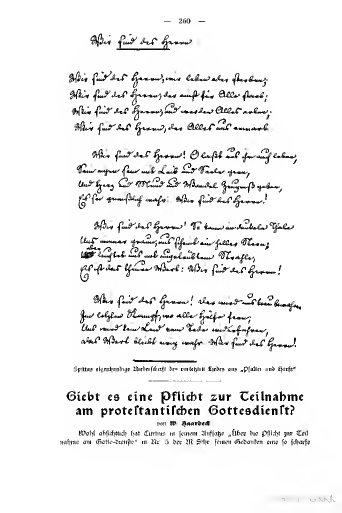 — 260 —
Wir sind des Herrn
Wir sind des Herrn, wir leben oder sterben;
Wir sind des Herrn, der einst für Alle starb;
Wir sind des Herrn, und werden Alles erben;
Wir sind des Herrn, der Alles uns erwarb.
Wir sind des Herrn! So laßt uns ihm auch leben,
Sein eigen sein mit Leib und Seele gern,
Und Herz und Mund und Wandel Zeugniß geben,
Es sei gewißlich wahr: Wir sind des Herrn!
Wir sind des Herrn! So kann im dunkeln Thale
Uns nimmer graun; uns scheint ein heller Stern;
leuchtet uns mit ungetrübtem Strahle,
Es ist das theure Wort: Wir sind des Herrn!
Wir sind des Herrn! der wird uns bewahren
Im letzten Kampf, wo alle Hülfe fern,
Uns wird kein Leid vom Tode widerfahren,
Das Wort bleibt ewig wahr: Wir sind des Herrn!
Spittas eigenhändige Niederschrift des vorletzten Liedes aus „Psalter und Harfe“
Giebt es eine Pflicht zur Teilnahme
am protestantischen Gottesdienst?
von W. Haardeck
Wohl absichtlich hat Curtius in seinem Aufsatze „Über die Pflicht zur Teil
nahme am Gottesdienste“ in Nr 5 der M Schr seinen Gedanken eine so scharfe